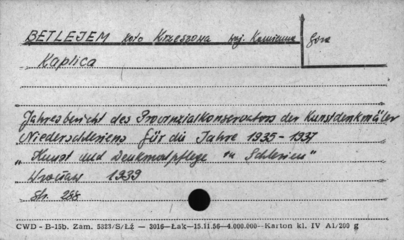 BETLEJEM koło Krzeszowa woj. Kamienna Góra
Kaplica
Jahresbericht des Provinzialkonservators der Kunstdenkmäler
Niederschlesiens für die Jahre 1935-1937
"Kunst und Denkmalpflege in Schlesien"
Wrocław 1939
Str. 288
CWD - B-15b. Zam. 5323/S/Łź — 2016—Łak—15.11.56—4.000.000—Karton kl. IV A1/200 g